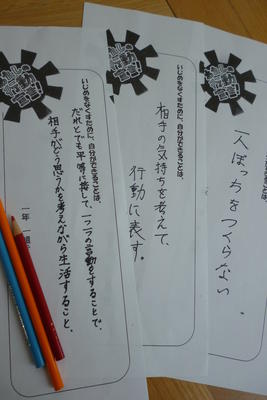 一人ぼっちをつくらない。
いじめをなくすために、自分ができることは、
相手の気持ちを考えて、
行動に表す。
いじめをなくすために、自分ができることは、
だれとでも平等に接して、一つ一つの言動をすることで、
相手がどう思うかを考えながら生活すること。
一年 一組